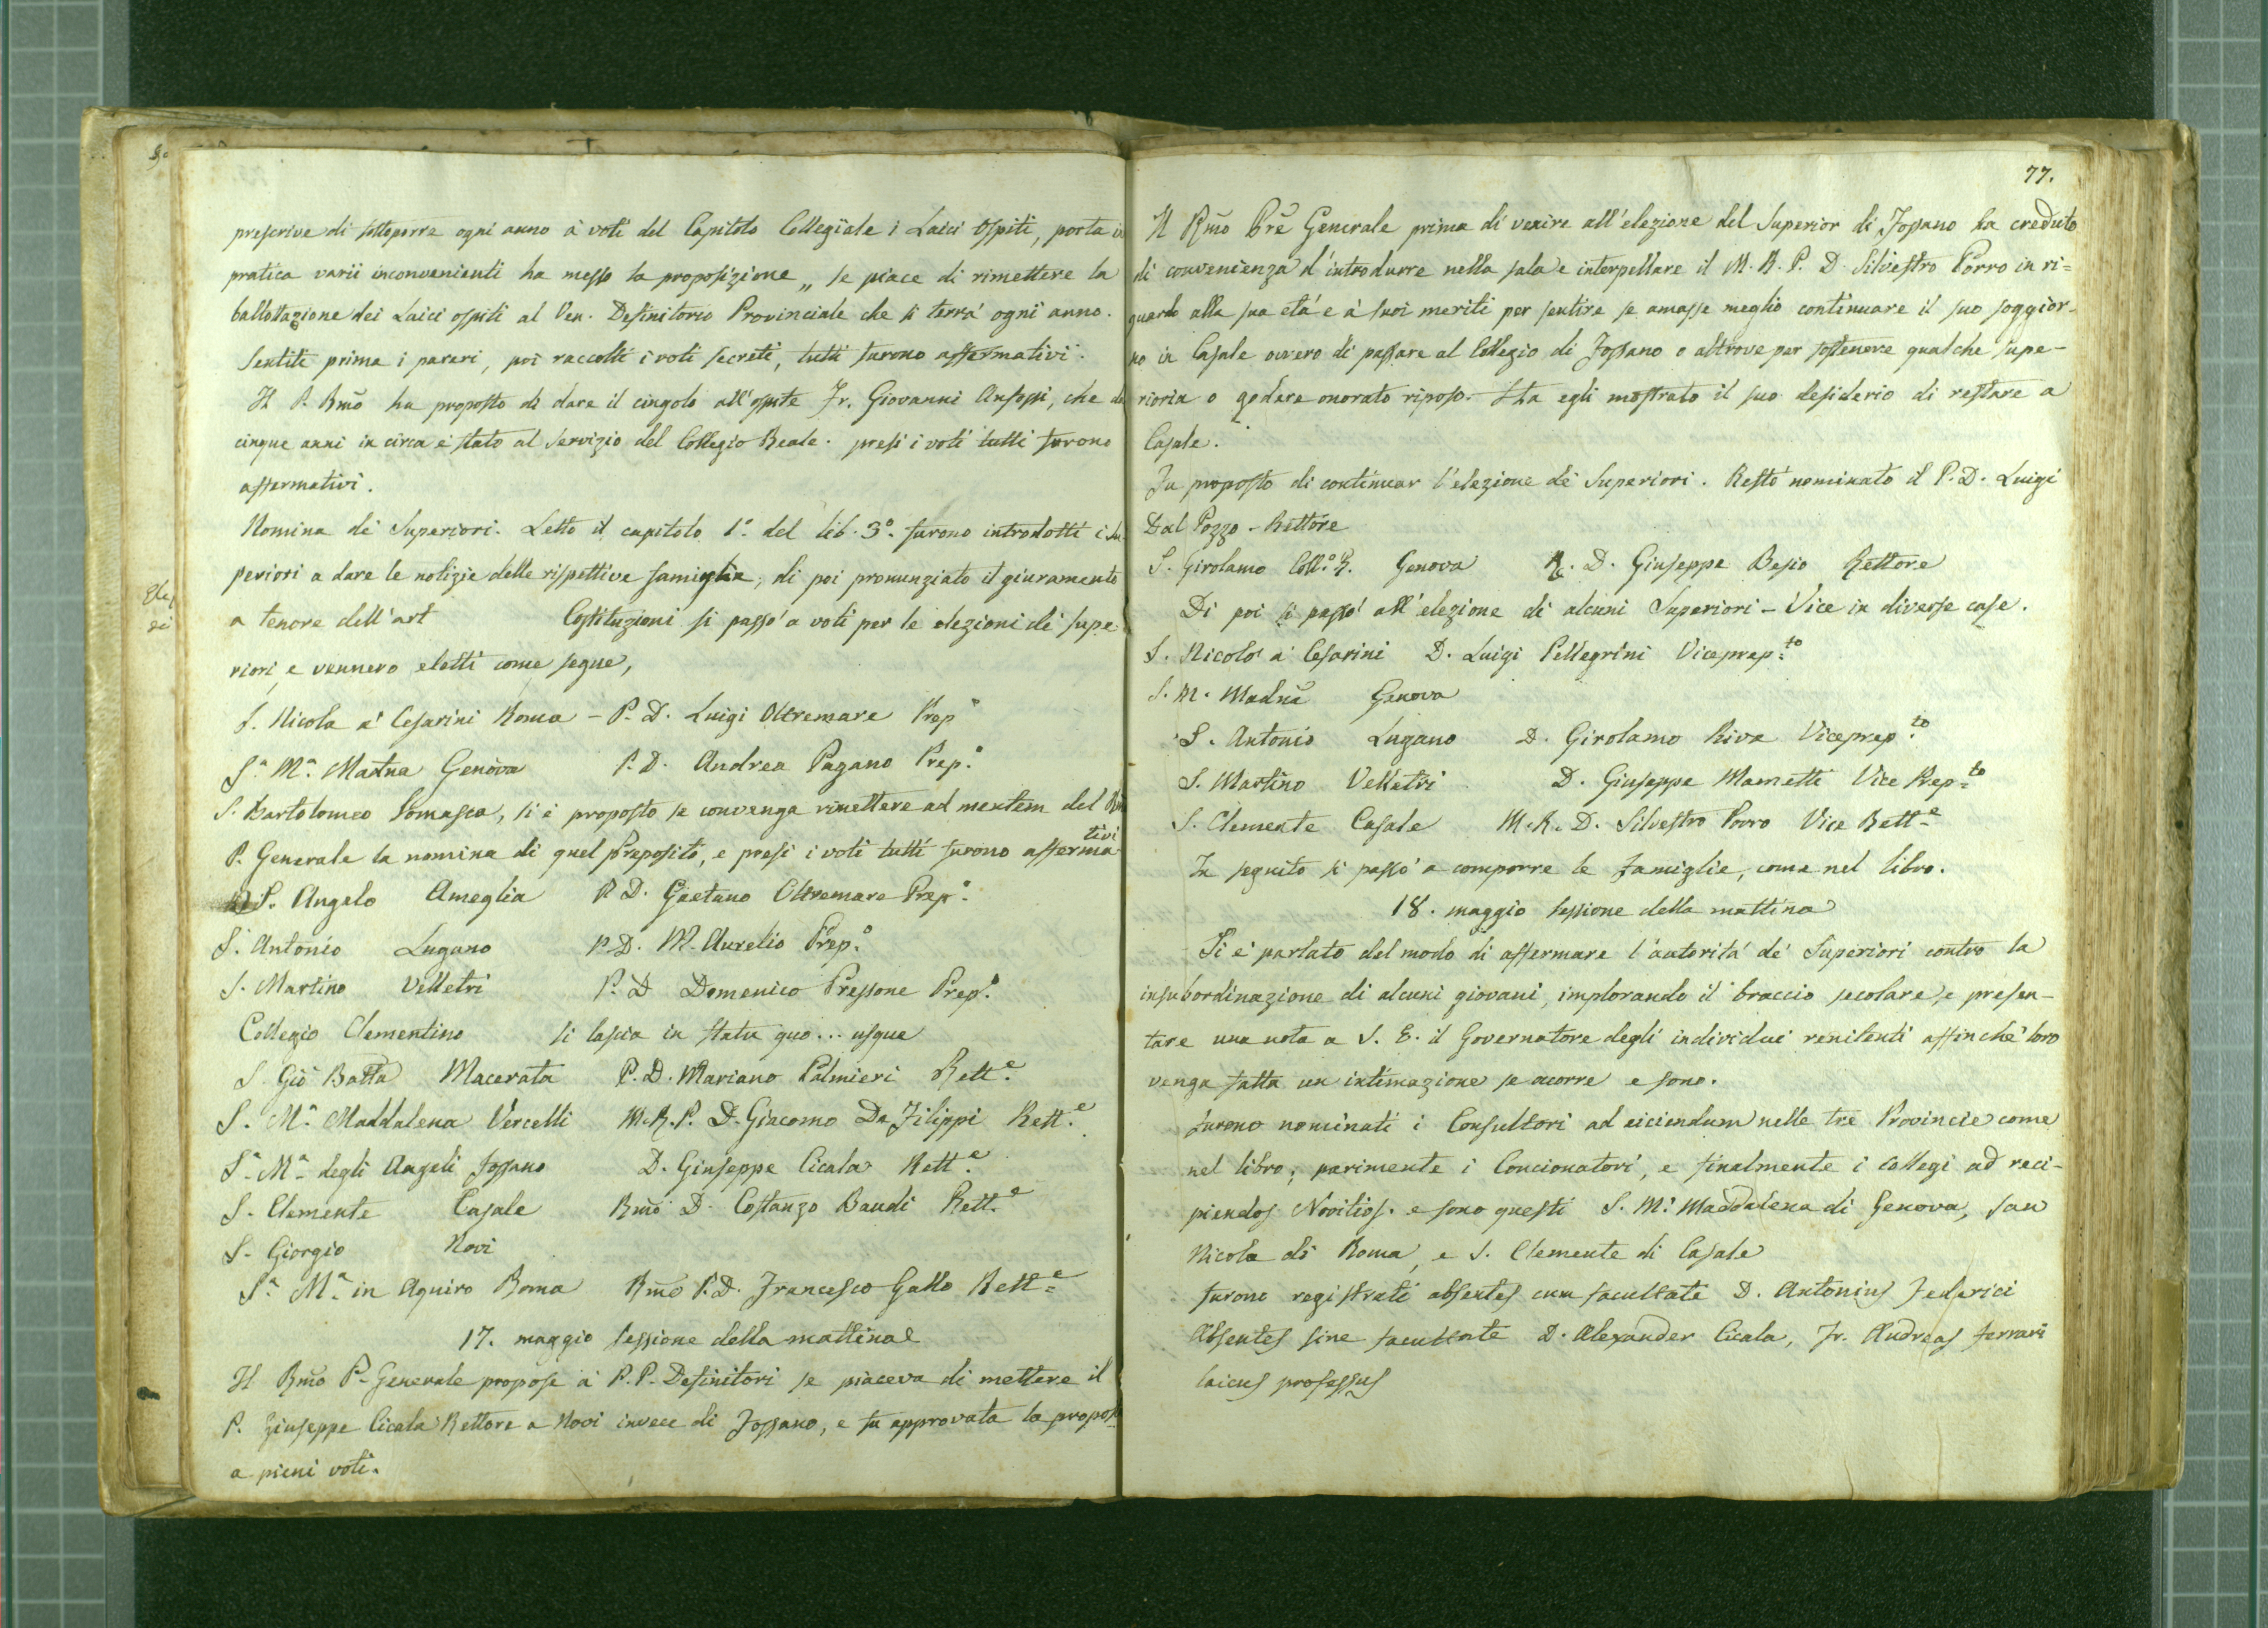 prescrive di sottoporre ogni anno a' voti del Capitolo Collegiale i Laici Ospiti, porta in
pratica varii inconvenienti ha messo la proposizione „ se piace di rimettere la
ballottazione dei Laici ospiti al Ven. Definitorio Provinciale che si terrà ogni anno.
Sentiti prima i pareri, poi raccolti i voti secreti, tutti furono affermativi.
Il P. Rmo ha proposto di dare il cingolo all'ospite Fr. Giovanni, che da
cinque anni in circa è stato al servizio del Collegio Reale. presi i voti tutti furono
affermativi.
Nomina de' Superiori. Letto il capitolo 1.° del lib. 3.° furono introdotti i Su
periori a dare le notizie delle rispettive famiglie, di poi pronunziato il giuramento
a tenore dell'art Costituzioni si passò a voti per le elezioni de' supe
riori, e vennero eletti come segue,
S. Nicola a' Cesarini Roma - P. D. Luigi Oltremare Prep°
S.a M.a Madna Genova P. D. Andrea Pagano Prep.°
S. Bartolomeo Somasca, si è proposto se convenga rimettere ad mentem del Rmo
P. Generale la nomina di quel Preposito, e presi i voti tutti furono afferma
tivi
S. Angelo Ameglia P. D. Gaetano Oltremare Prep.°
S. Antonio Lugano P. D. M. Aurelio Prep.°
S. Martino Velletri P. D Domenico Pressone Prep.°
Collegio Clementino si lascia in statu quo... usque
S. Gio Batta Macerata P. D. Mariano Palmieri Rett.e
S. M.a Maddalena Vercelli M. R. P. D. Giacomo De Filippi Rett.e
S.a M.a degli Angeli Fossano D. Giuseppe Cicala Rett.e
S. Clemente Casale Rmo D. Costanzo Baudi Rett.e
S. Giorgio Novi
S.a M.a in Aquiro Roma Rmo P. D. Francesco Gallo Rett.e
17. maggio sessione della mattina
Il Rmo P. Generale propose a' P. P. Definitori se piaceva di mettere il
P. Giuseppe Cicala Rettore a Novi invece di Fossano, e fu approvata la propos
a pieni voti.
77.
Il Rmo Pre Generale prima di venire all'elezione del Superior di Fossano ha creduto
di convenienza d'introdurre nella sala e interpellare il M. R. P. D. Silvestro Porro in ri=
guardo alla sua età e a' suoi meriti per sentire se amasse meglio continuare il suo soggior-
no in Casale ovvero di passare al Collegio di Fossano o altrove per sostenere qualche supe-
rioria o godere onorato riposo. Ha egli mostrato il suo desiderio di restare a
Casale.
Fu proposto di continuar l'elezione de' Superiori. Restò nominato il P. D. Luigi
Dal Pozzo - Rettore
S. Girolamo Coll.° R. Genova D. Giuseppe Besio Rettore
Di poi si passò all'elezione di alcuni Superiori - Vice in diverse case.
S. Nicolò a' Cesarini D. Luigi Pellegrini Viceprep.to
S. M. Madna Genova
S. Antonio Lugano D. Girolamo Riva Viceprep.to
S. Martino Velletri D. Giuseppe Mametti Vice Prep.to
S. Clemente Casale M. R. D. Silvestro Porro Vice Rett.e
In seguito si passò a comporre le famiglie, come nel libro.
18. maggio sessione della mattina
Si è parlato del modo di affermare l'autorità de' Superiori contro la
insubordinazione di alcuni giovani, implorando il braccio secolare, e presen-
tare una nota a S. E. il Governatore degli individui renitenti affinchè loro
venga fatta un intimazione se occorre e sono.
furono nominati i Consultori ad eiciendum nelle tre Provincie come
nel libro; parimente i Concionatori, e finalmente i collegi ad reci-
piendos Novitios. e sono questi S. M.a Maddalena di Genova, san
Nicola di Roma, e S. Clemente di Casale
furono registrati absentes cum facultate D. Antonius Federici
Absentes sine facultate D. Alexander Cicala, Fr. Andreas Ferrari
laicus professus